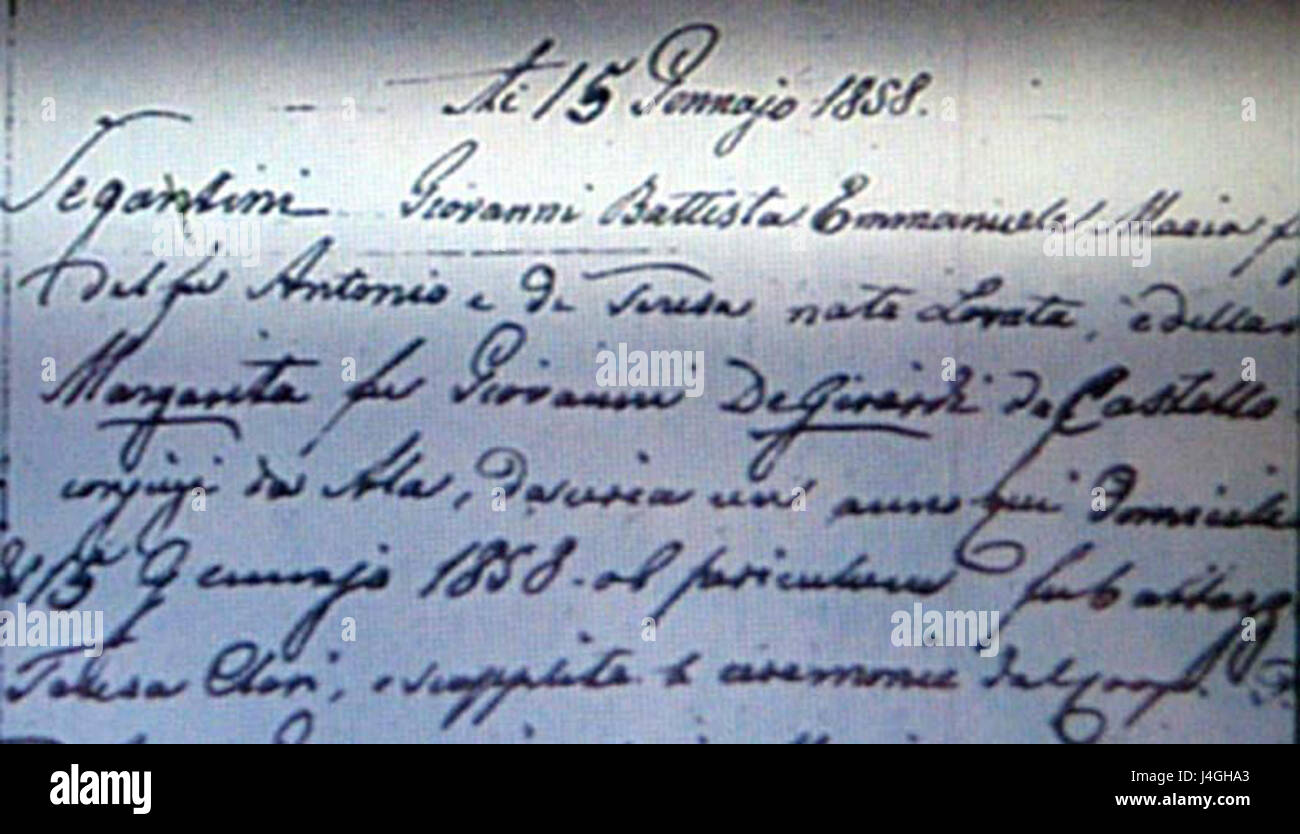 Ai 15 Gennajo 1858.
Segantini Giovanni Battista Emmanuele Maria f
del fu Antonio e di Teresa nata Lorata, e della
Margarita fu Giovanni DeGirardi da Castello
conjugi da Ala, da circa un' anno qui domicile
15 Gennajo 1858. al periculum fu battezz
Teresa Chri, e supplite le ceremonie dal coop.
alamy
Image ID: J4GHA3
www.alamy.com